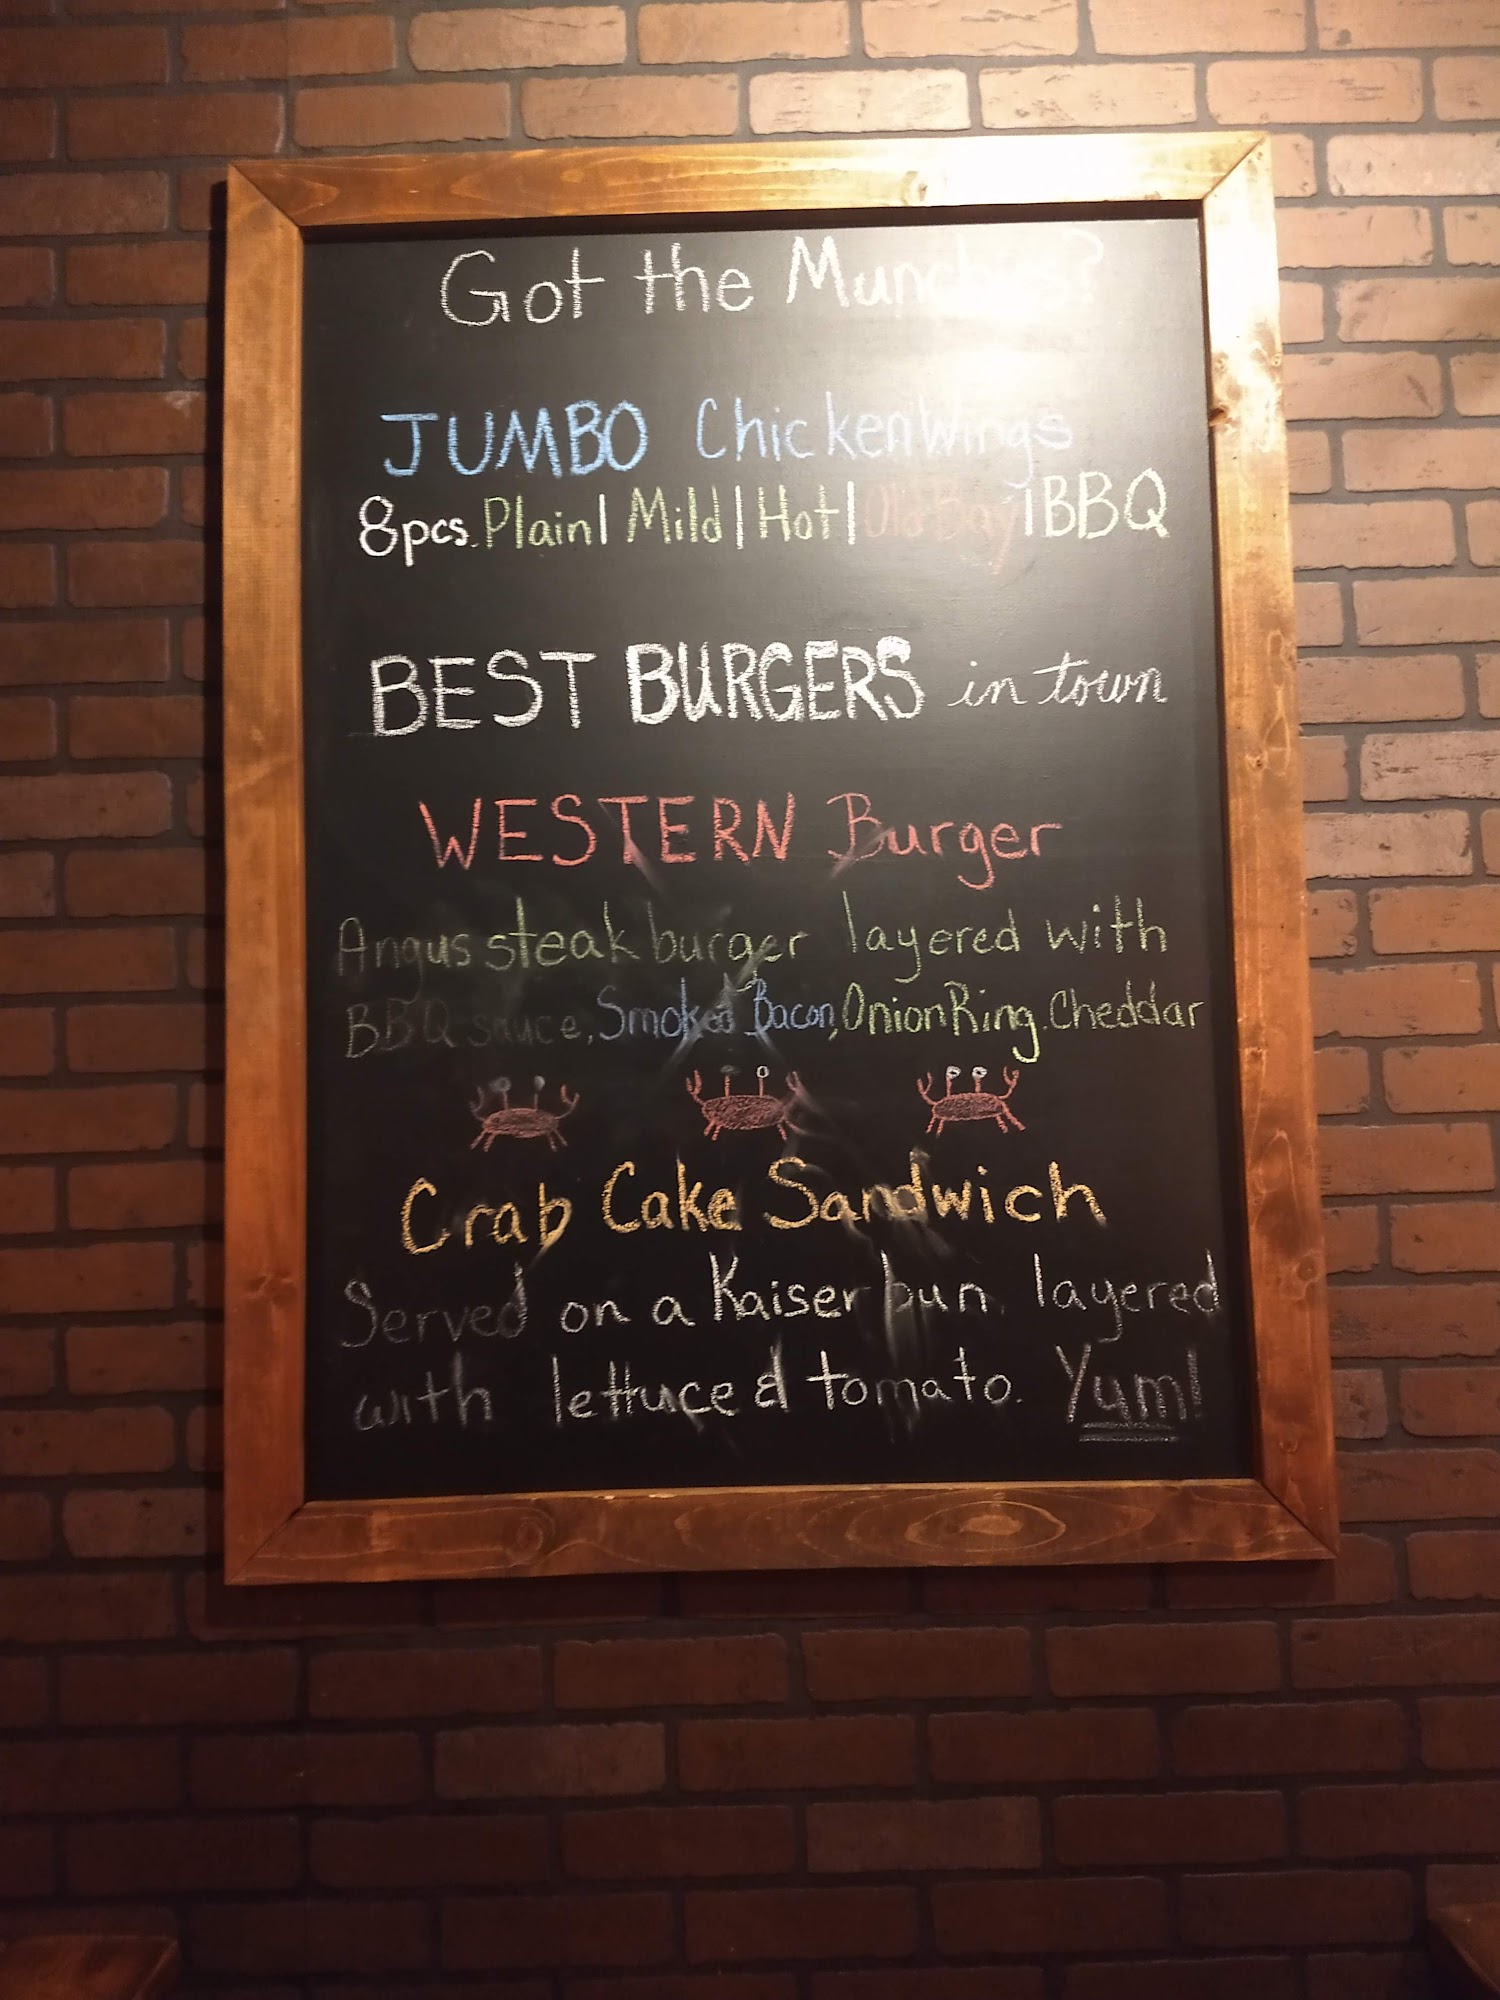 Got the Munchies?
JUMBO Chicken Wings
8pcs. Plain | Mild | Hot | Old Bay | BBQ
BEST BURGERS in town
WESTERN Burger
Angus steak burger layered with
BBQ sauce, Smoked Bacon, Onion Ring, Cheddar
Crab Cake Sandwich
Served on a Kaiser bun layered
with lettuce & tomato. Yum!